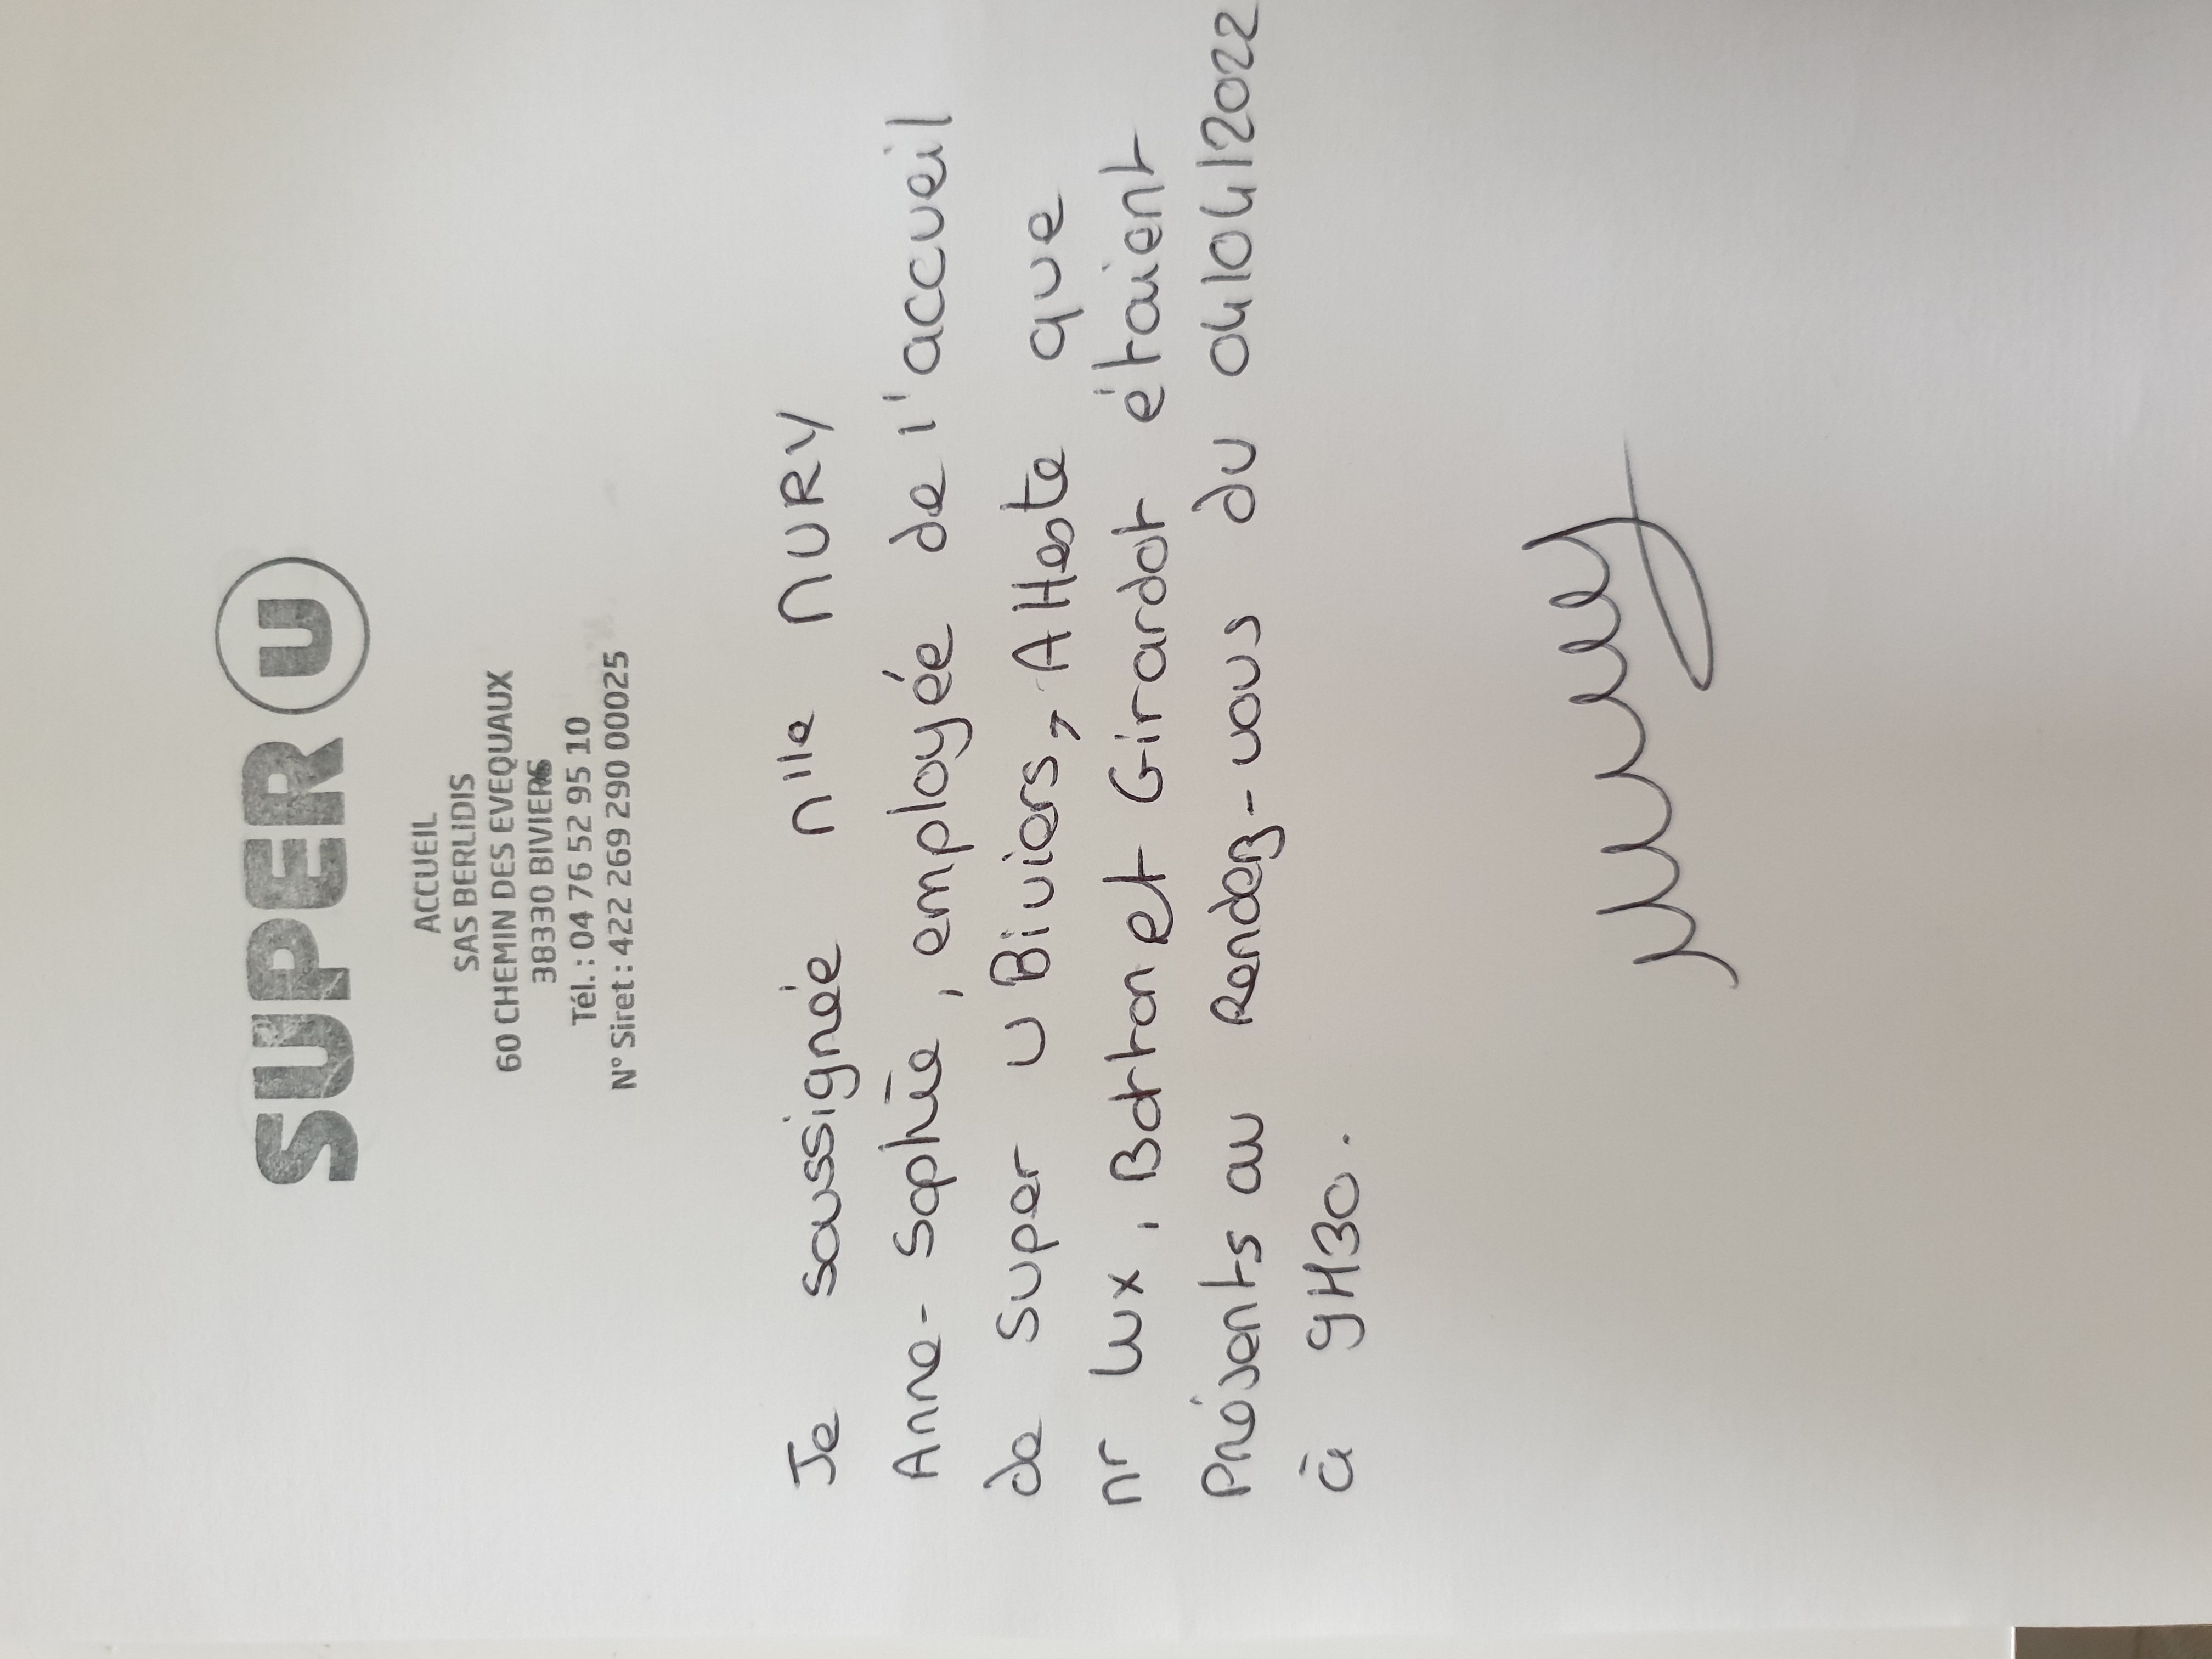 SUPER U
ACCUEIL
SAS BERLIDIS
60 CHEMIN DES EVEQUAUX
38330 BIVIERS
Tél. : 04 76 52 95 10
N° Siret : 422 269 290 00025
Je soussignée Mlle MURY
Anne-Sophie, employée de l'accueil
de super U Biviers, Atteste que
Mr Lux, Botton et Girardot étaient
Présents au Rendez-vous du 04/04/2022
à 9H30.